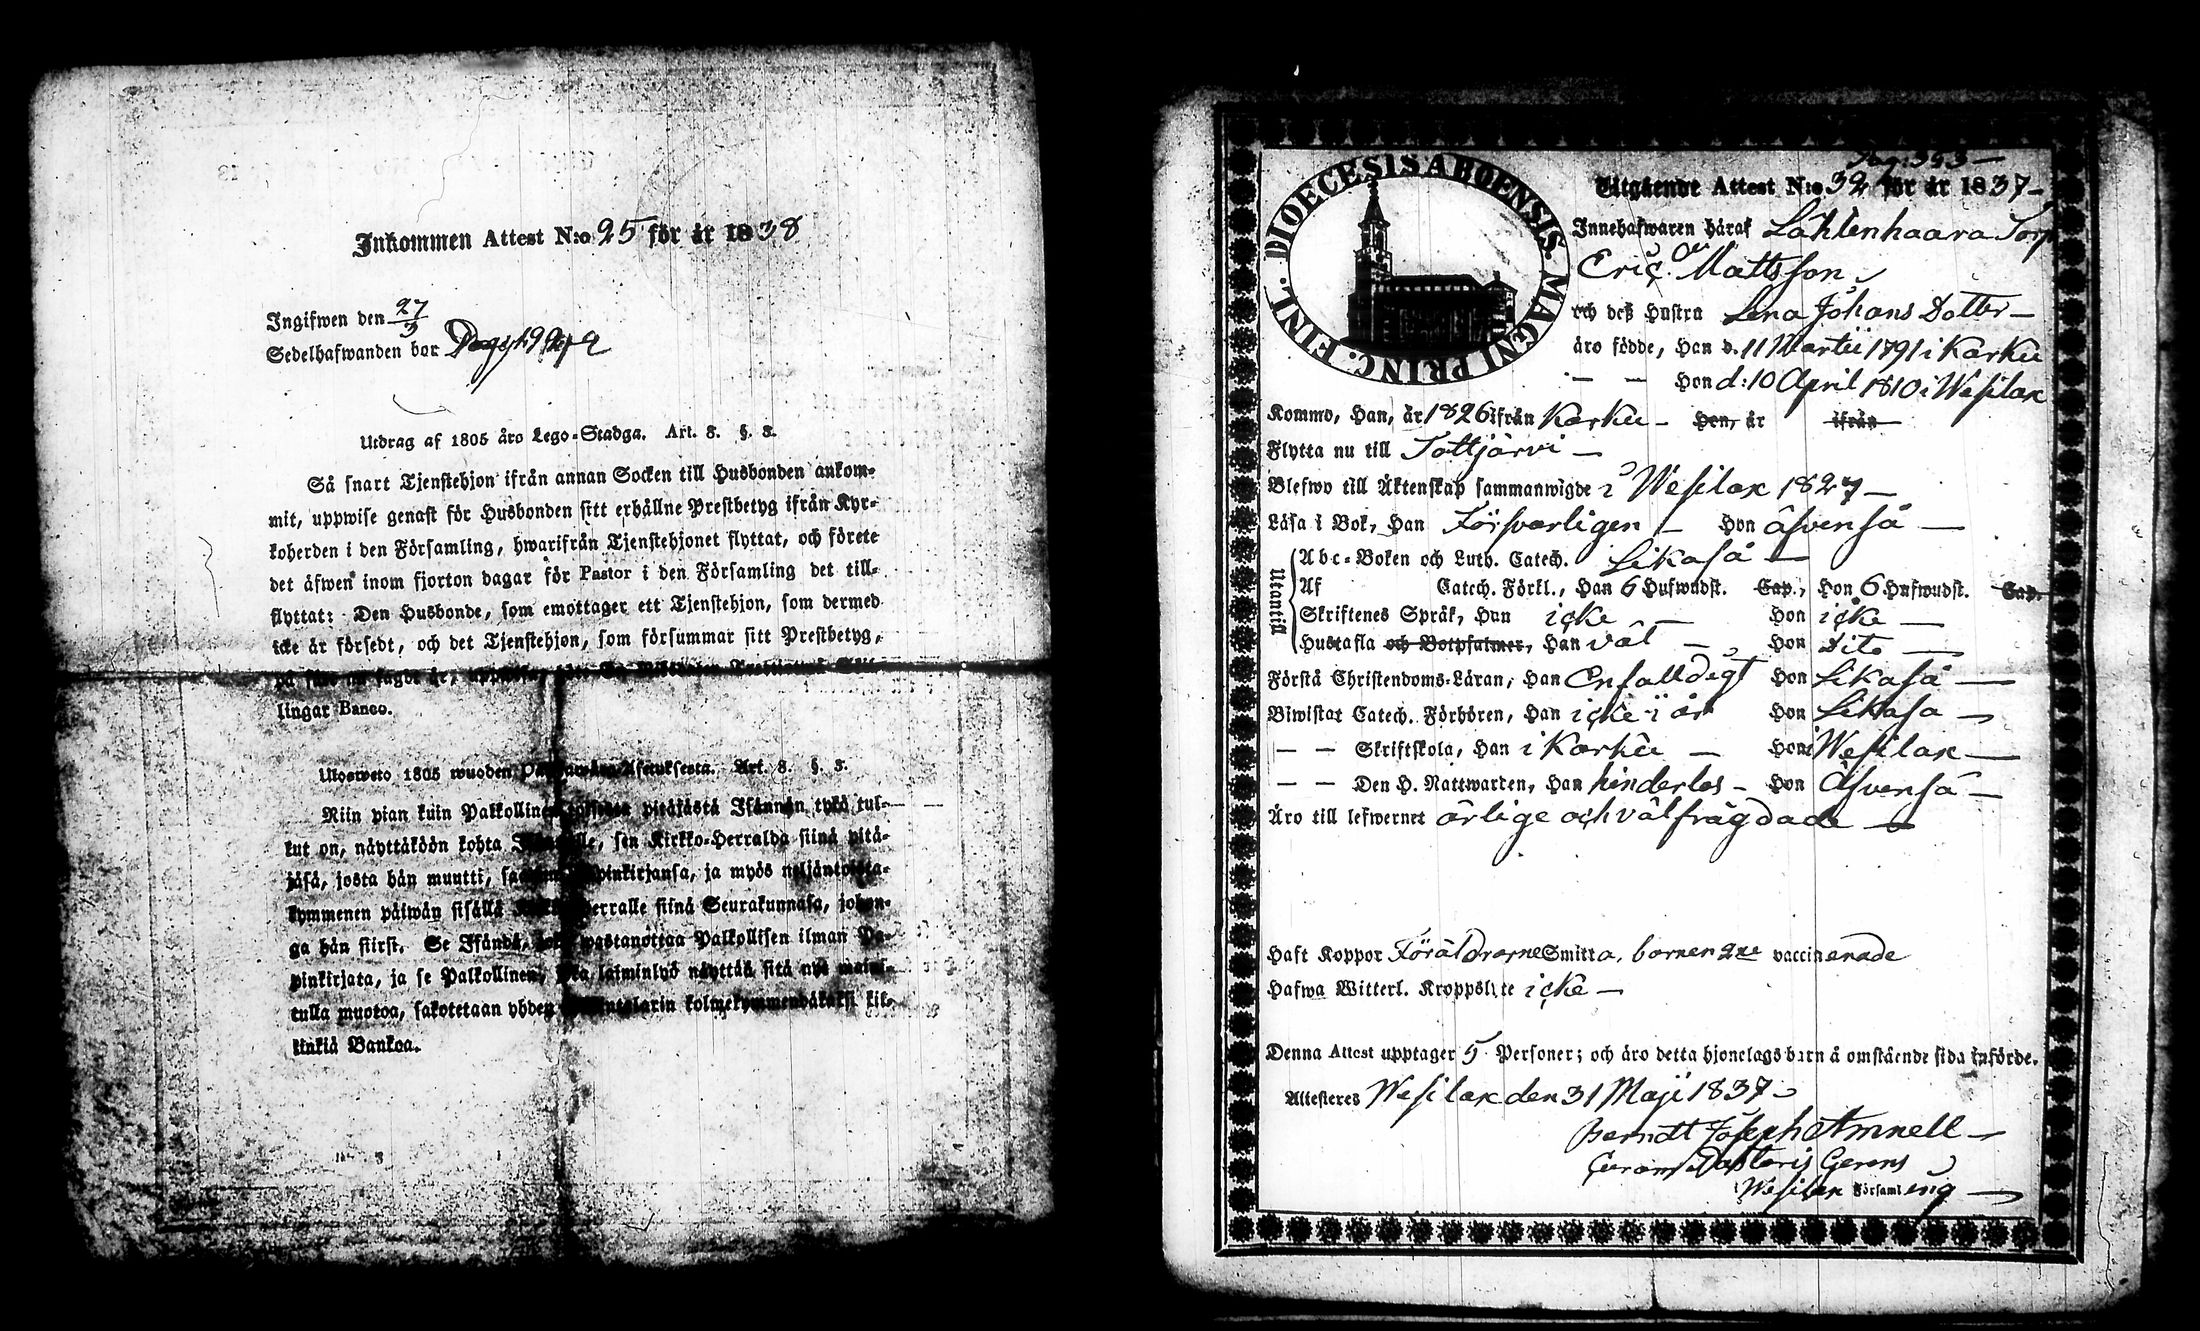 Inkommen Attest N:o 25 för år 1838
Ingifwen den 27/3
Sedelhafwanden bor
Utdrag af 1805 års Lego-Stadga. Art. 3. §. 3.
Så snart Tjenstehjon ifrån annan Socken till Husbonden ankom-
mit, uppwise genast för Husbonden sitt erhållne Prestbetyg ifrån Kyr-
koherden i den Församling, hwarifrån Tjenstehjonet flyttat, och förete
det äfwen inom fjorton dagar för Pastor i den Församling det till-
flyttat: Den Husbonde, som emottager ett Tjenstehjon, som dermed
icke är försedt, och det Tjenstehjon, som försummar sitt Prestbetyg,
på sätt nu sagdt är,
lingar Banco.
Ulosweto 1805 wuoden Art. 3. §. 3.
Niin pian kuin Palkollinen toisesta pitäjästä Isännän tykö tul-
kut on, näyttäköön kohta sen Kirkko-Herralda siinä pitä-
jäsä, josta hän muutti, pinkirjansa, ja myös neljäntoista-
kymmenen päiwän sisällä siinä Seurakunnasa, johon-
ga hän siirsi. Se Isändä, joka wastanottaa Palkollisen ilman Pa-
pinkirjata, ja se Palkollinen, joka laiminlyö näyttää sitä nyt maini-
tulla muotoa, sakotetaan yhden kolmekymmendäkaksi kil-
linkiä Bankoa.
Pag: 393
Utgående Attest N:o 32 för år 1837
Innehafwaren häraf Lähtenhaara Torp
Eric Mattsson
och deß Hustru Lena Johans Dotter
äro födde, Han d. 11 Martii 1791 i Karku
— — Hon d: 10 April 1810 i Wesilax
Kommo, Han, år 1826 ifrån Karku Hon, år ifrån
Flytta nu till Tottjärvi
Blefwo till Äktenskap sammanwigde i Wesilax 1827
Läsa i Bok, Han Försvarligen Hon äfvenså
Utantill
Abc-Boken och Luth. Catech. Likaså
Af Catech. Förkl., Han 6 Hufwudst. Cap., Hon 6 Hufwudst. Cap.
Skriftenes Språk, Han icke Hon icke
Hustafla och Botpsalmer, Han väl Hon Dito
Förstå Christendoms-Läran, Han Enfaldigt Hon Likaså
Biwistat Catech. Förhören, Han icke i år Hon Likaså
— — Skriftskola, Han i Karku Hon i Wesilax
— — Den H. Nattwarden, Han hinderlös Hon Äfvenså
Äro till lefwernet ärlige och välfrägdade
Haft Koppor Föräldrarne Smitta, barnen 2ne vaccinerade
Hafwa Witterl. Kroppslyte icke
Denna Attest upptager 5 Personer; och äro detta hjonelags barn å omstående sida införde.
Attesteres Wesilax den 31 Maji 1837
Berndt Joseph Amnell
Curam Pastoris Gerens
i Wesilax Församling
DIOECESIS ABOENSIS. MAGNI PRINC. FINL.